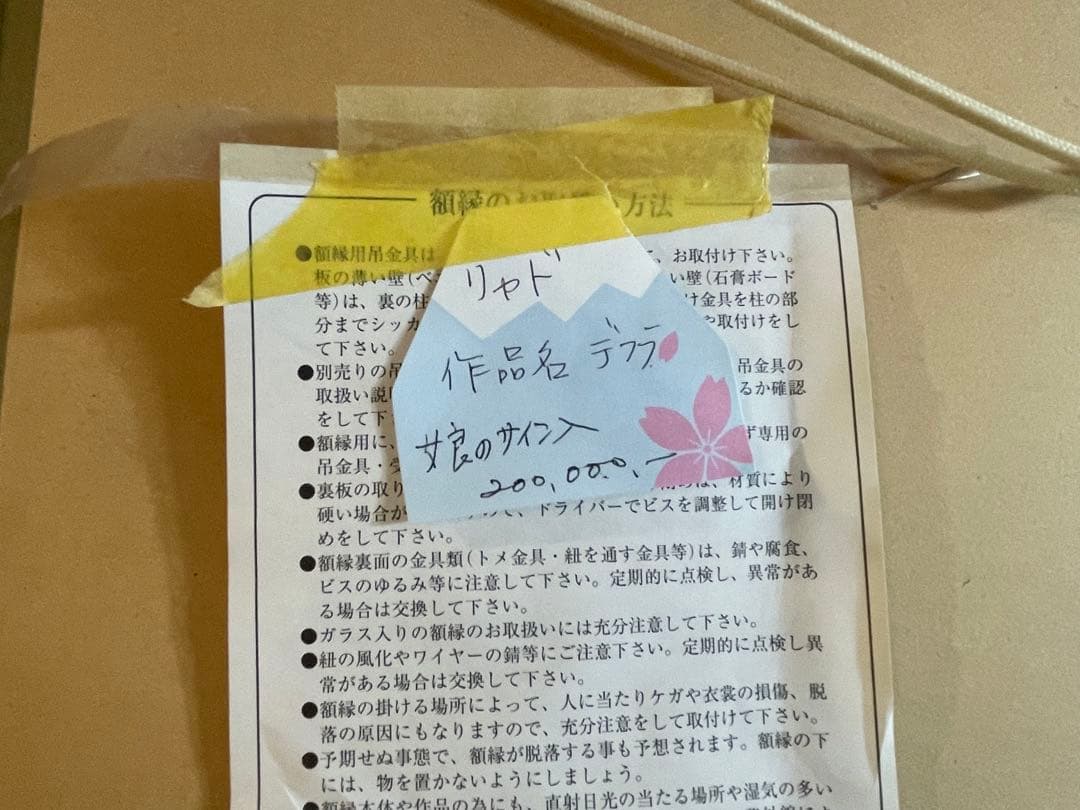 額縁のお取 方法
リャド
作品名 デッラ
娘のサイン入
200,000,-
●額縁用吊金具は 、お取付け下さい。
板の薄い壁(ベ い壁(石膏ボード
等)は、裏の柱 け金具を柱の部
分までシッカ や取付けをし
て下さい。
●別売りの吊 吊金具の
取扱い説明 るか確認
をして下
●額縁用に、 ず専用の
吊金具・受
●裏板の取り は、材質により
硬い場合が ので、ドライバーでビスを調整して開け閉
めをして下さい。
●額縁裏面の金具類(トメ金具・紐を通す金具等)は、錆や腐食、
ビスのゆるみ等に注意して下さい。定期的に点検し、異常があ
る場合は交換して下さい。
●ガラス入りの額縁のお取扱いには充分注意して下さい。
●紐の風化やワイヤーの錆等にご注意下さい。定期的に点検し異
常がある場合は交換して下さい。
●額縁の掛ける場所によって、人に当たりケガや衣裳の損傷、脱
落の原因にもなりますので、充分注意をして取付けて下さい。
●予期せぬ事態で、額縁が脱落する事も予想されます。額縁の下
には、物を置かないようにしましょう。
●額縁本体や作品の為にも、直射日光の当たる場所や湿気の多い